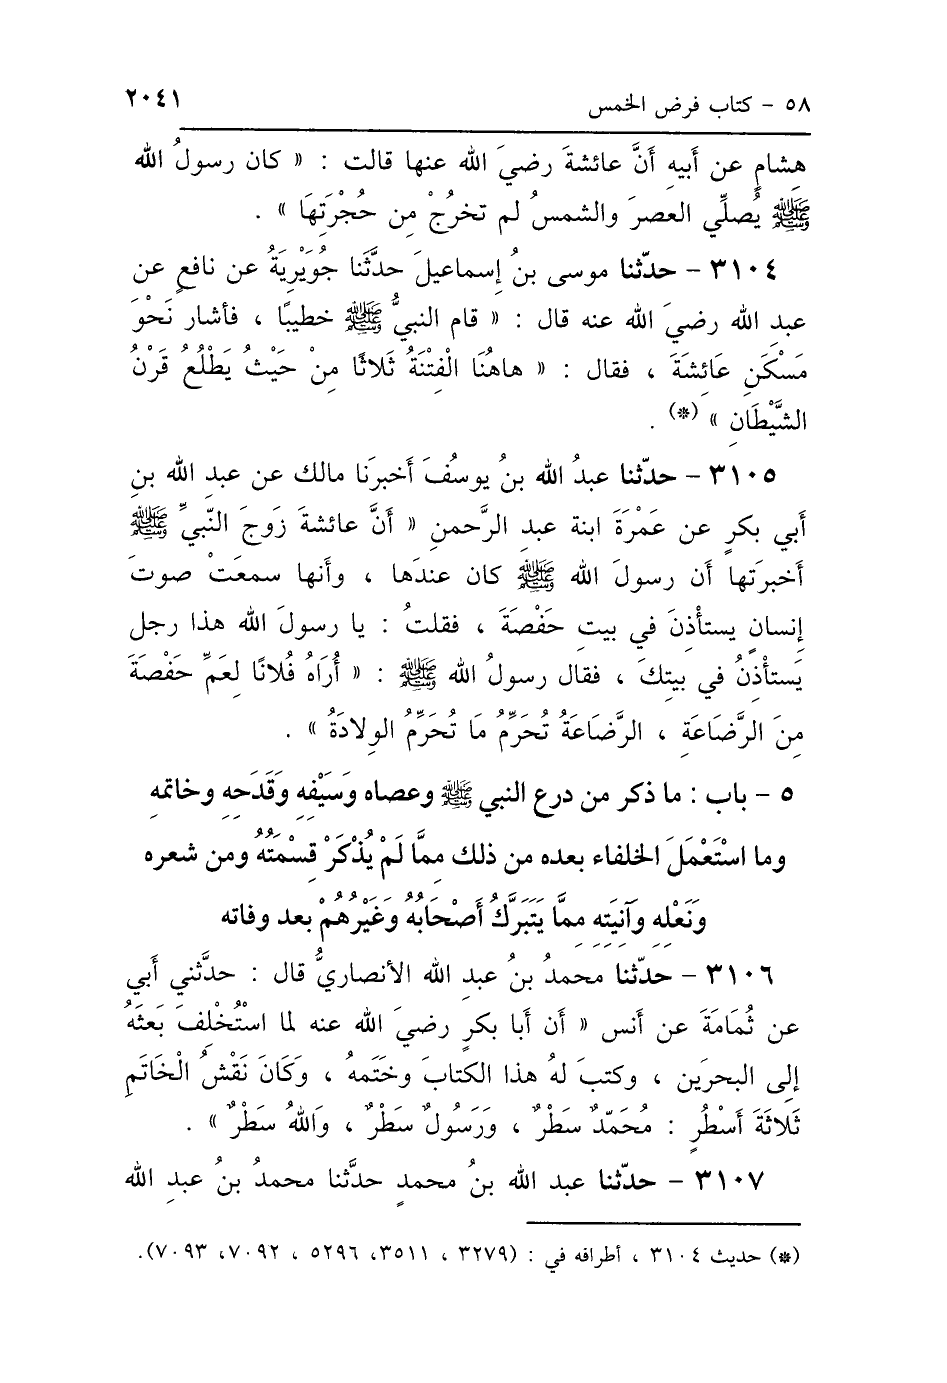 ٥٨ - كتاب فرض الخمس ٢٠٤١
هِشامٍ عن أَبيهِ أَنَّ عائشةَ رضيَ الله عنها قالت : « كان رسولُ الله
ﷺ يُصلِّي العصرَ والشمسُ لم تخرُجْ مِن حُجْرَتِهَا » .
٣١٠٤ - حدّثنا موسى بنُ إسماعيلَ حدَّثَنا جُوَيْرِيَةُ عن نافعٍ عن
عبدِ الله رضيَ الله عنه قال : « قام النبيُّ ﷺ خطيبًا ، فأشار نَحْوَ
مَسْكَنِ عَائِشَةَ ، فقال : « هاهُنَا الْفِتْنَةُ ثَلاثًا مِنْ حَيْثُ يَطْلُعُ قَرْنُ
الشَّيْطَانِ » (*) .
٣١٠٥ - حدّثنا عبدُ الله بنُ يوسُفَ أَخبرَنا مالك عن عبدِ الله بنِ
أَبي بكرٍ عن عَمْرَةَ ابنة عبدِ الرَّحمنِ « أَنَّ عائشةَ زَوجَ النَّبيِّ ﷺ
أَخبرَتها أَن رسولَ الله ﷺ كان عندَها ، وأَنها سمعَتْ صوتَ
إنسانٍ يستأْذِنَ في بيتِ حَفْصَةَ ، فقلتُ : يا رسولَ الله هذا رجل
يَستأْذِنُ في بيتِكَ ، فقال رسولُ الله ﷺ : « أُرَاهُ فُلانًا لِعَمِّ حَفْصَةَ
مِنَ الرَّضَاعَةِ ، الرَّضَاعَةُ تُحَرِّمُ مَا تُحَرِّمُ الوِلادَةُ » .
٥ - باب : ما ذكر من درع النبي ﷺ وعصاه وَسَيْفِهِ وَقَدَحِهِ وخاتمه
وما اسْتَعْمَلَ الخلفاء بعده من ذلك مِمَّا لَمْ يُذْكَرْ قِسْمَتُهُ ومن شعره
وَنَعْلِهِ وآنِيَتِهِ مِمَّا يَتَبَرَّكُ أَصْحَابُهُ وَغَيْرُهُمْ بعد وفاته
٣١٠٦ - حدّثنا محمدُ بنُ عبدِ الله الأنصاريُّ قال : حدَّثني أَبي
عن ثُمَامَةَ عن أَنس « أَن أَبا بكرٍ رضيَ الله عنه لما اسْتُخْلِفَ بَعثَهُ
إلى البحرَين ، وكتبَ لهُ هذا الكتابَ وخَتَمهُ ، وَكَانَ نَقْشُ الْخَاتَمِ
ثَلاثَةَ أَسْطُرٍ : مُحَمَّدٌ سَطْرٌ ، وَرَسُولٌ سَطْرٌ ، وَاللهُ سَطْرٌ » .
٣١٠٧ - حدّثنا عبد الله بنُ محمدٍ حدَّثنا محمدُ بنُ عبدِ الله
(*) حديث ٣١٠٤ ، أطرافه في : (٣٢٧٩ ، ٣٥١١، ٥٢٩٦ ، ٧٠٩٢، ٧٠٩٣).